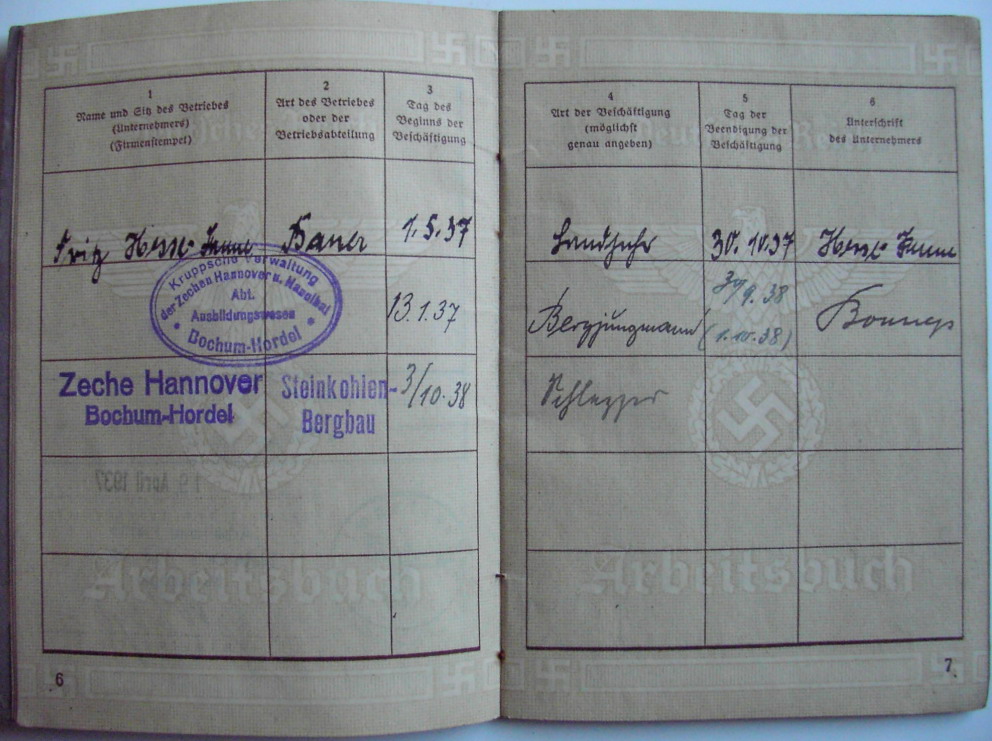 1
Name und Sitz des Betriebes
(Unternehmers)
(Firmenstempel)
2
Art des Betriebes
oder der
Betriebsabteilung
3
Tag des
Beginns der
Beschäftigung
Fritz Bauer 1.5.37
Kruppsche Verwaltung
der Zechen Hannover u. Hannibal
Abt.
Ausbildungswesen
Bochum-Hordel
13.1.37
Zeche Hannover
Bochum-Hordel
Steinkohlen-
Bergbau
3/10.38
19. April 1937
Arbeitsbuch
6
4
Art der Beschäftigung
(möglichst
genau angeben)
5
Tag der
Beendigung der
Beschäftigung
6
Unterschrift
des Unternehmers
Landjahr 30.10.37
30/9.38
Bergjungmann (1.10.38)
Schlepper
Arbeitsbuch
7